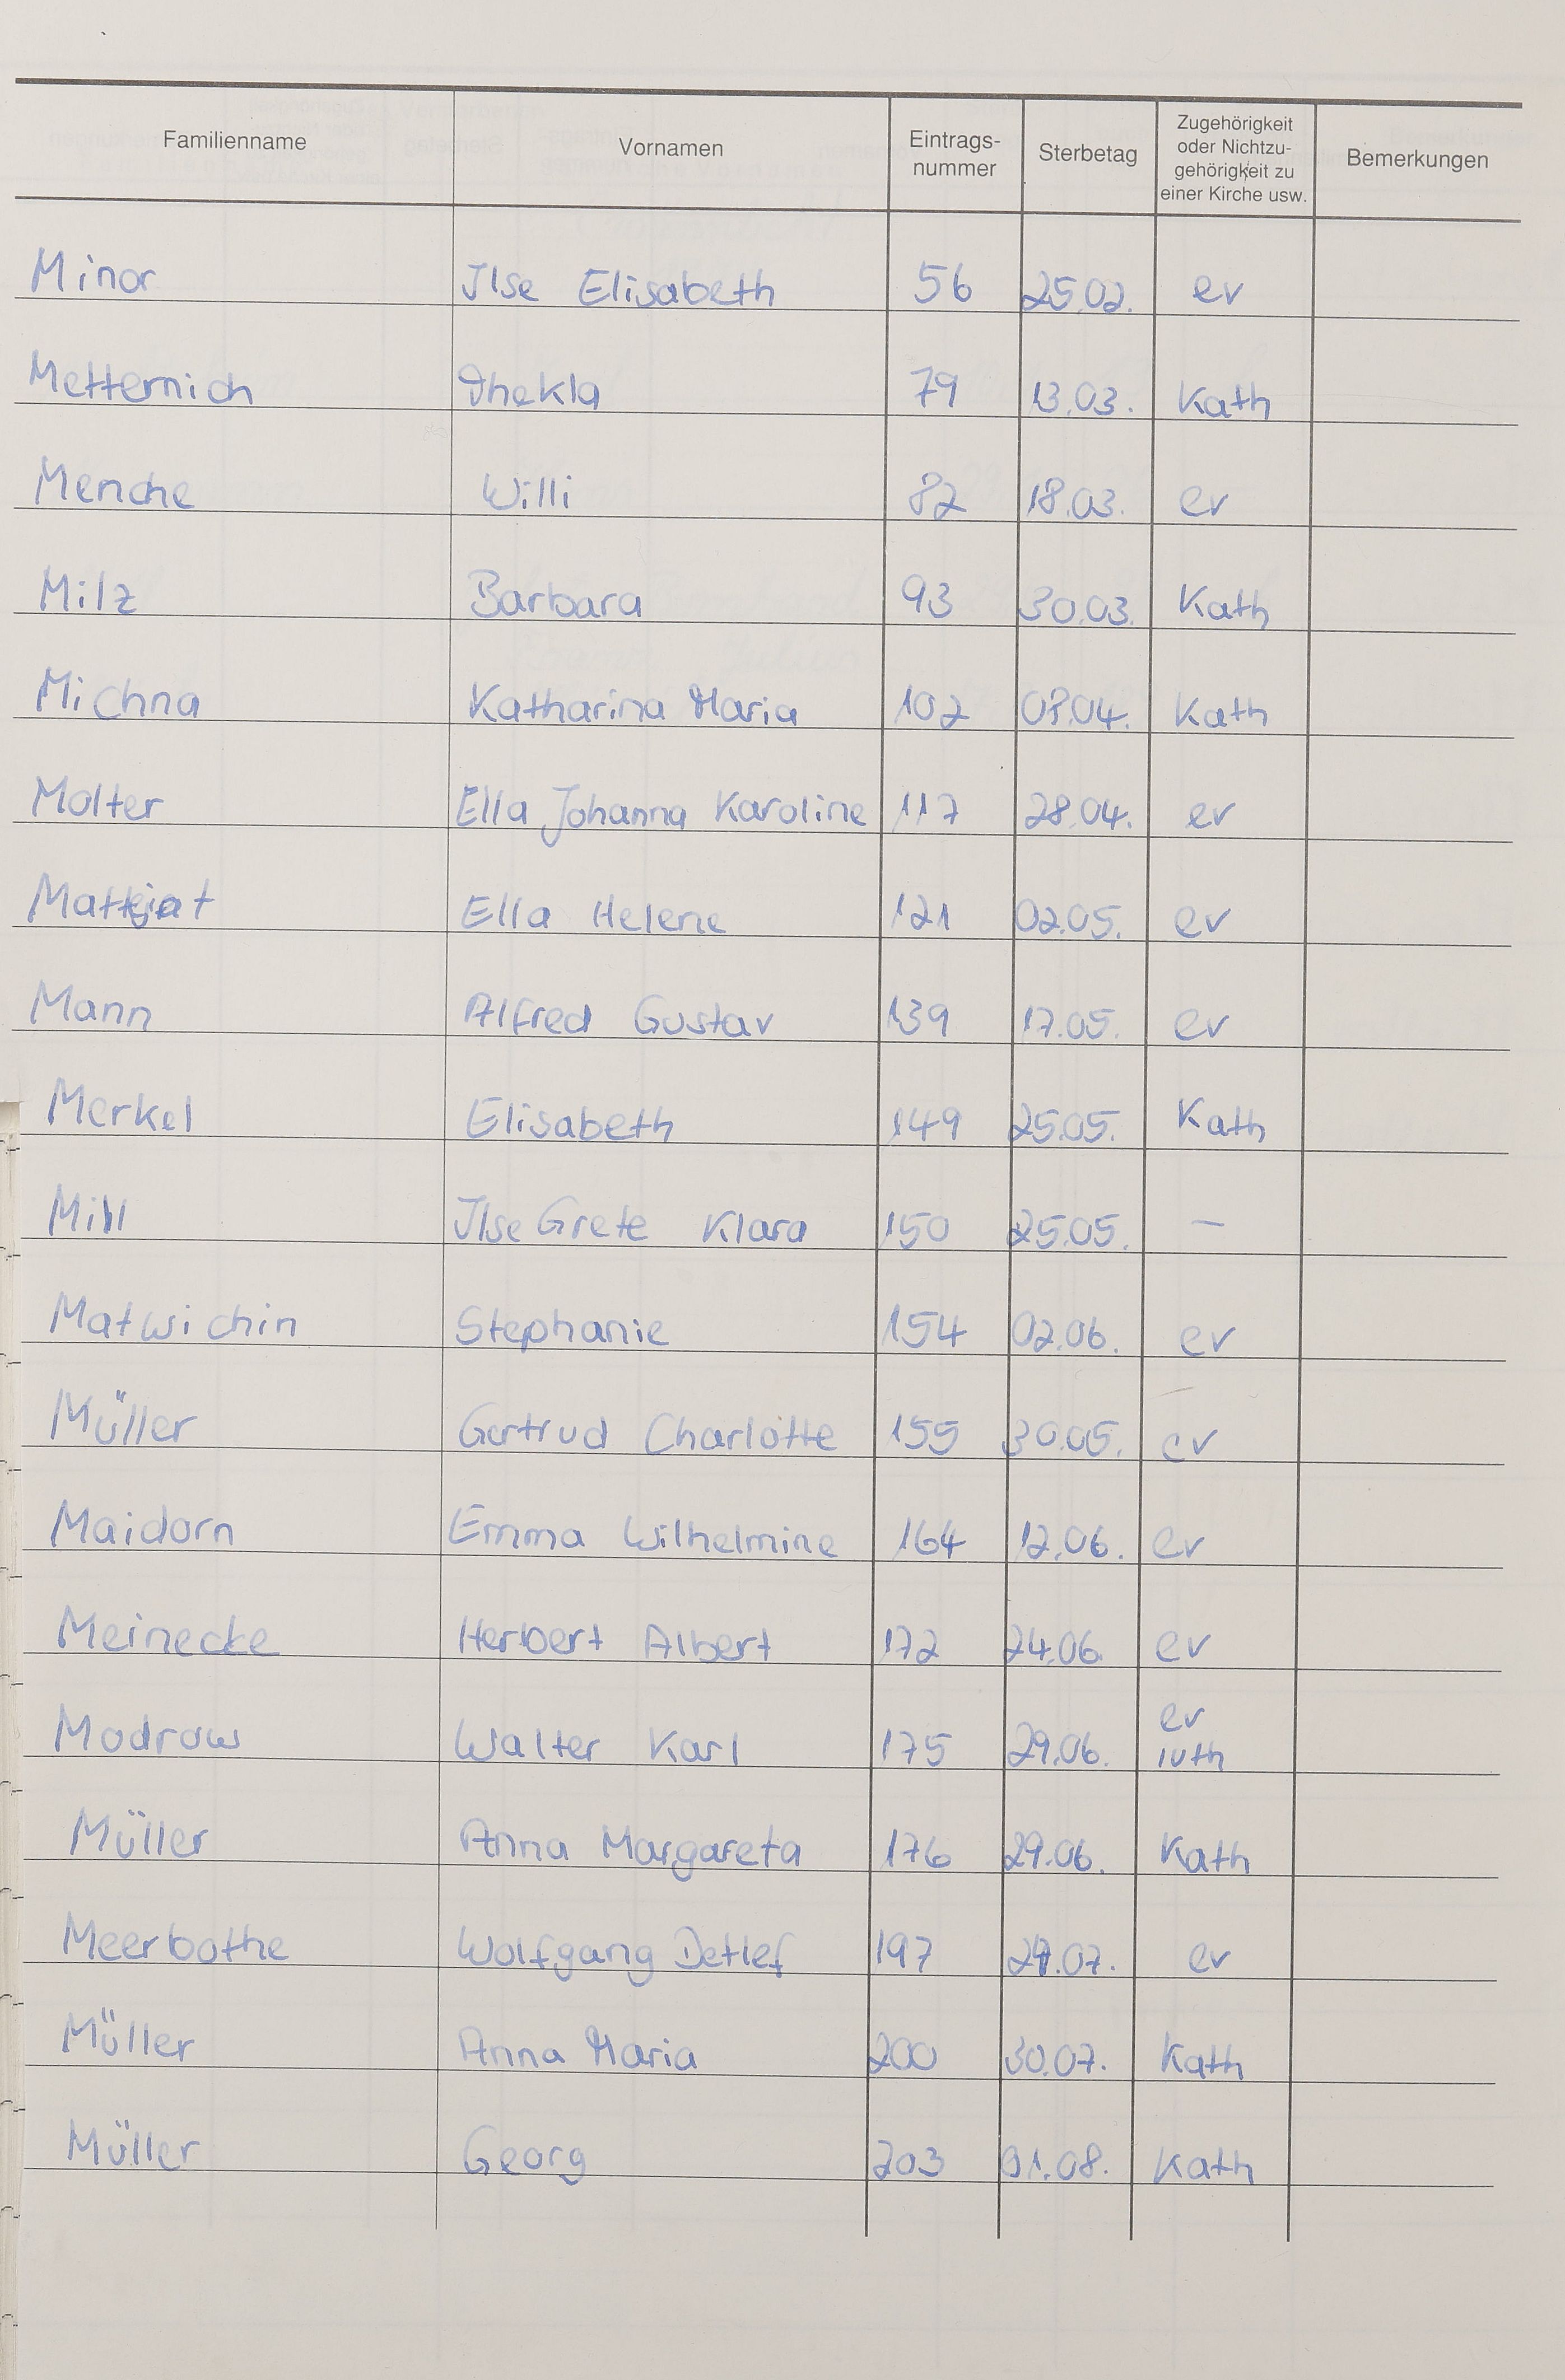 Familienname Vornamen Eintrags-nummer Sterbetag Zugehörigkeit oder Nichtzu-gehörigkeit zu einer Kirche usw. Bemerkungen
Minor Ilse Elisabeth 56 25.02. ev
Metternich Thekla 79 13.03. Kath
Menche Willi 82 18.03. ev
Milz Barbara 93 30.03. Kath
Michna Katharina Maria 102 08.04. Kath
Molter Ella Johanna Karoline 117 28.04. ev
Ella Helene 121 02.05. ev
Mann Alfred Gustav 139 17.05. ev
Merkel Elisabeth 149 25.05. Kath
Ilse Grete Klara 150 25.05. —
Matwichin Stephanie 154 02.06. ev
Müller Gertrud Charlotte 155 30.05. ev
Maidorn Emma Wilhelmine 164 12.06. ev
Meinecke Herbert Albert 172 24.06. ev
Modrow Walter Karl 175 29.06. ev luth
Müller Anna Margareta 176 29.06. Kath
Meerbothe Wolfgang Detlef 197 ev
Müller Anna Maria 200 30.07. Kath
Müller Georg 203 01.08. Kath